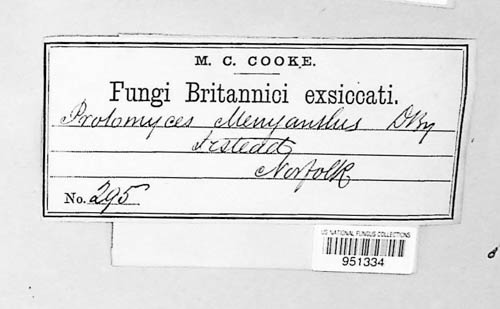 M. C. COOKE.
Fungi Britannici exsiccati.
Protomyces Menyanthus DBy
Irstead
Norfolk
No. 295
US NATIONAL FUNGUS COLLECTIONS
951334